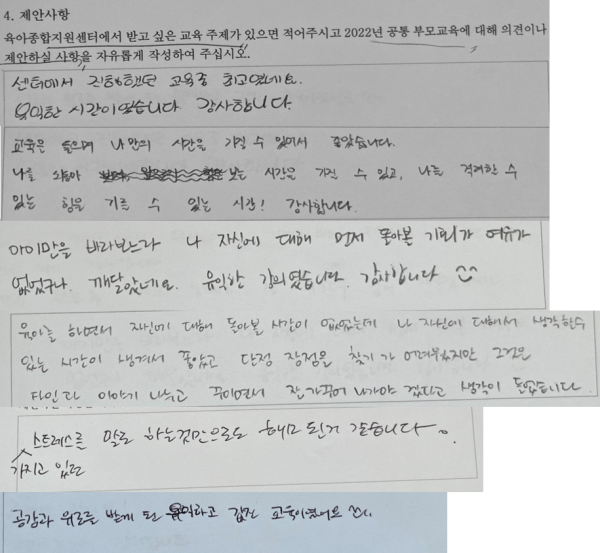 4. 제안사항
육아종합지원센터에서 받고 싶은 교육 주제가 있으면 적어주시고 2022년 공통 부모교육에 대해 의견이나
제안하실 사항을 자유롭게 작성하여 주십시오.
센터에서 진행했던 교육중 최고였네요.
유익한 시간이었습니다 감사합니다.
교육을 들으며 나만의 시간을 가질 수 있어서 좋았습니다.
나를 돌아 보는 시간을 가질 수 있고, 나를 격려할 수
있는 힘을 기를 수 있는 시간! 감사합니다.
아이만을 바라보느라 나 자신에 대해 먼저 돌아본 기회가 여유가
없었구나. 깨달았네요. 유익한 강의였습니다. 감사합니다 ^^
육아를 하면서 자신에 대해 돌아볼 시간이 없었는데 나 자신에 대해서 생각할수
있는 시간이 생겨서 좋았고 단점 장점을 찾기가 어려웠지만 그것은
타인과 이야기 나누고 꾸미면서 잘 가꾸어 나가야 겠다고 생각이 들었습니다.
스트레스를 말로 하는것만으로도 해소 된거 같습니다~.
가지고 있던
공감과 위로를 받게 된 유익하고 값진 교육이였어요 ^^.